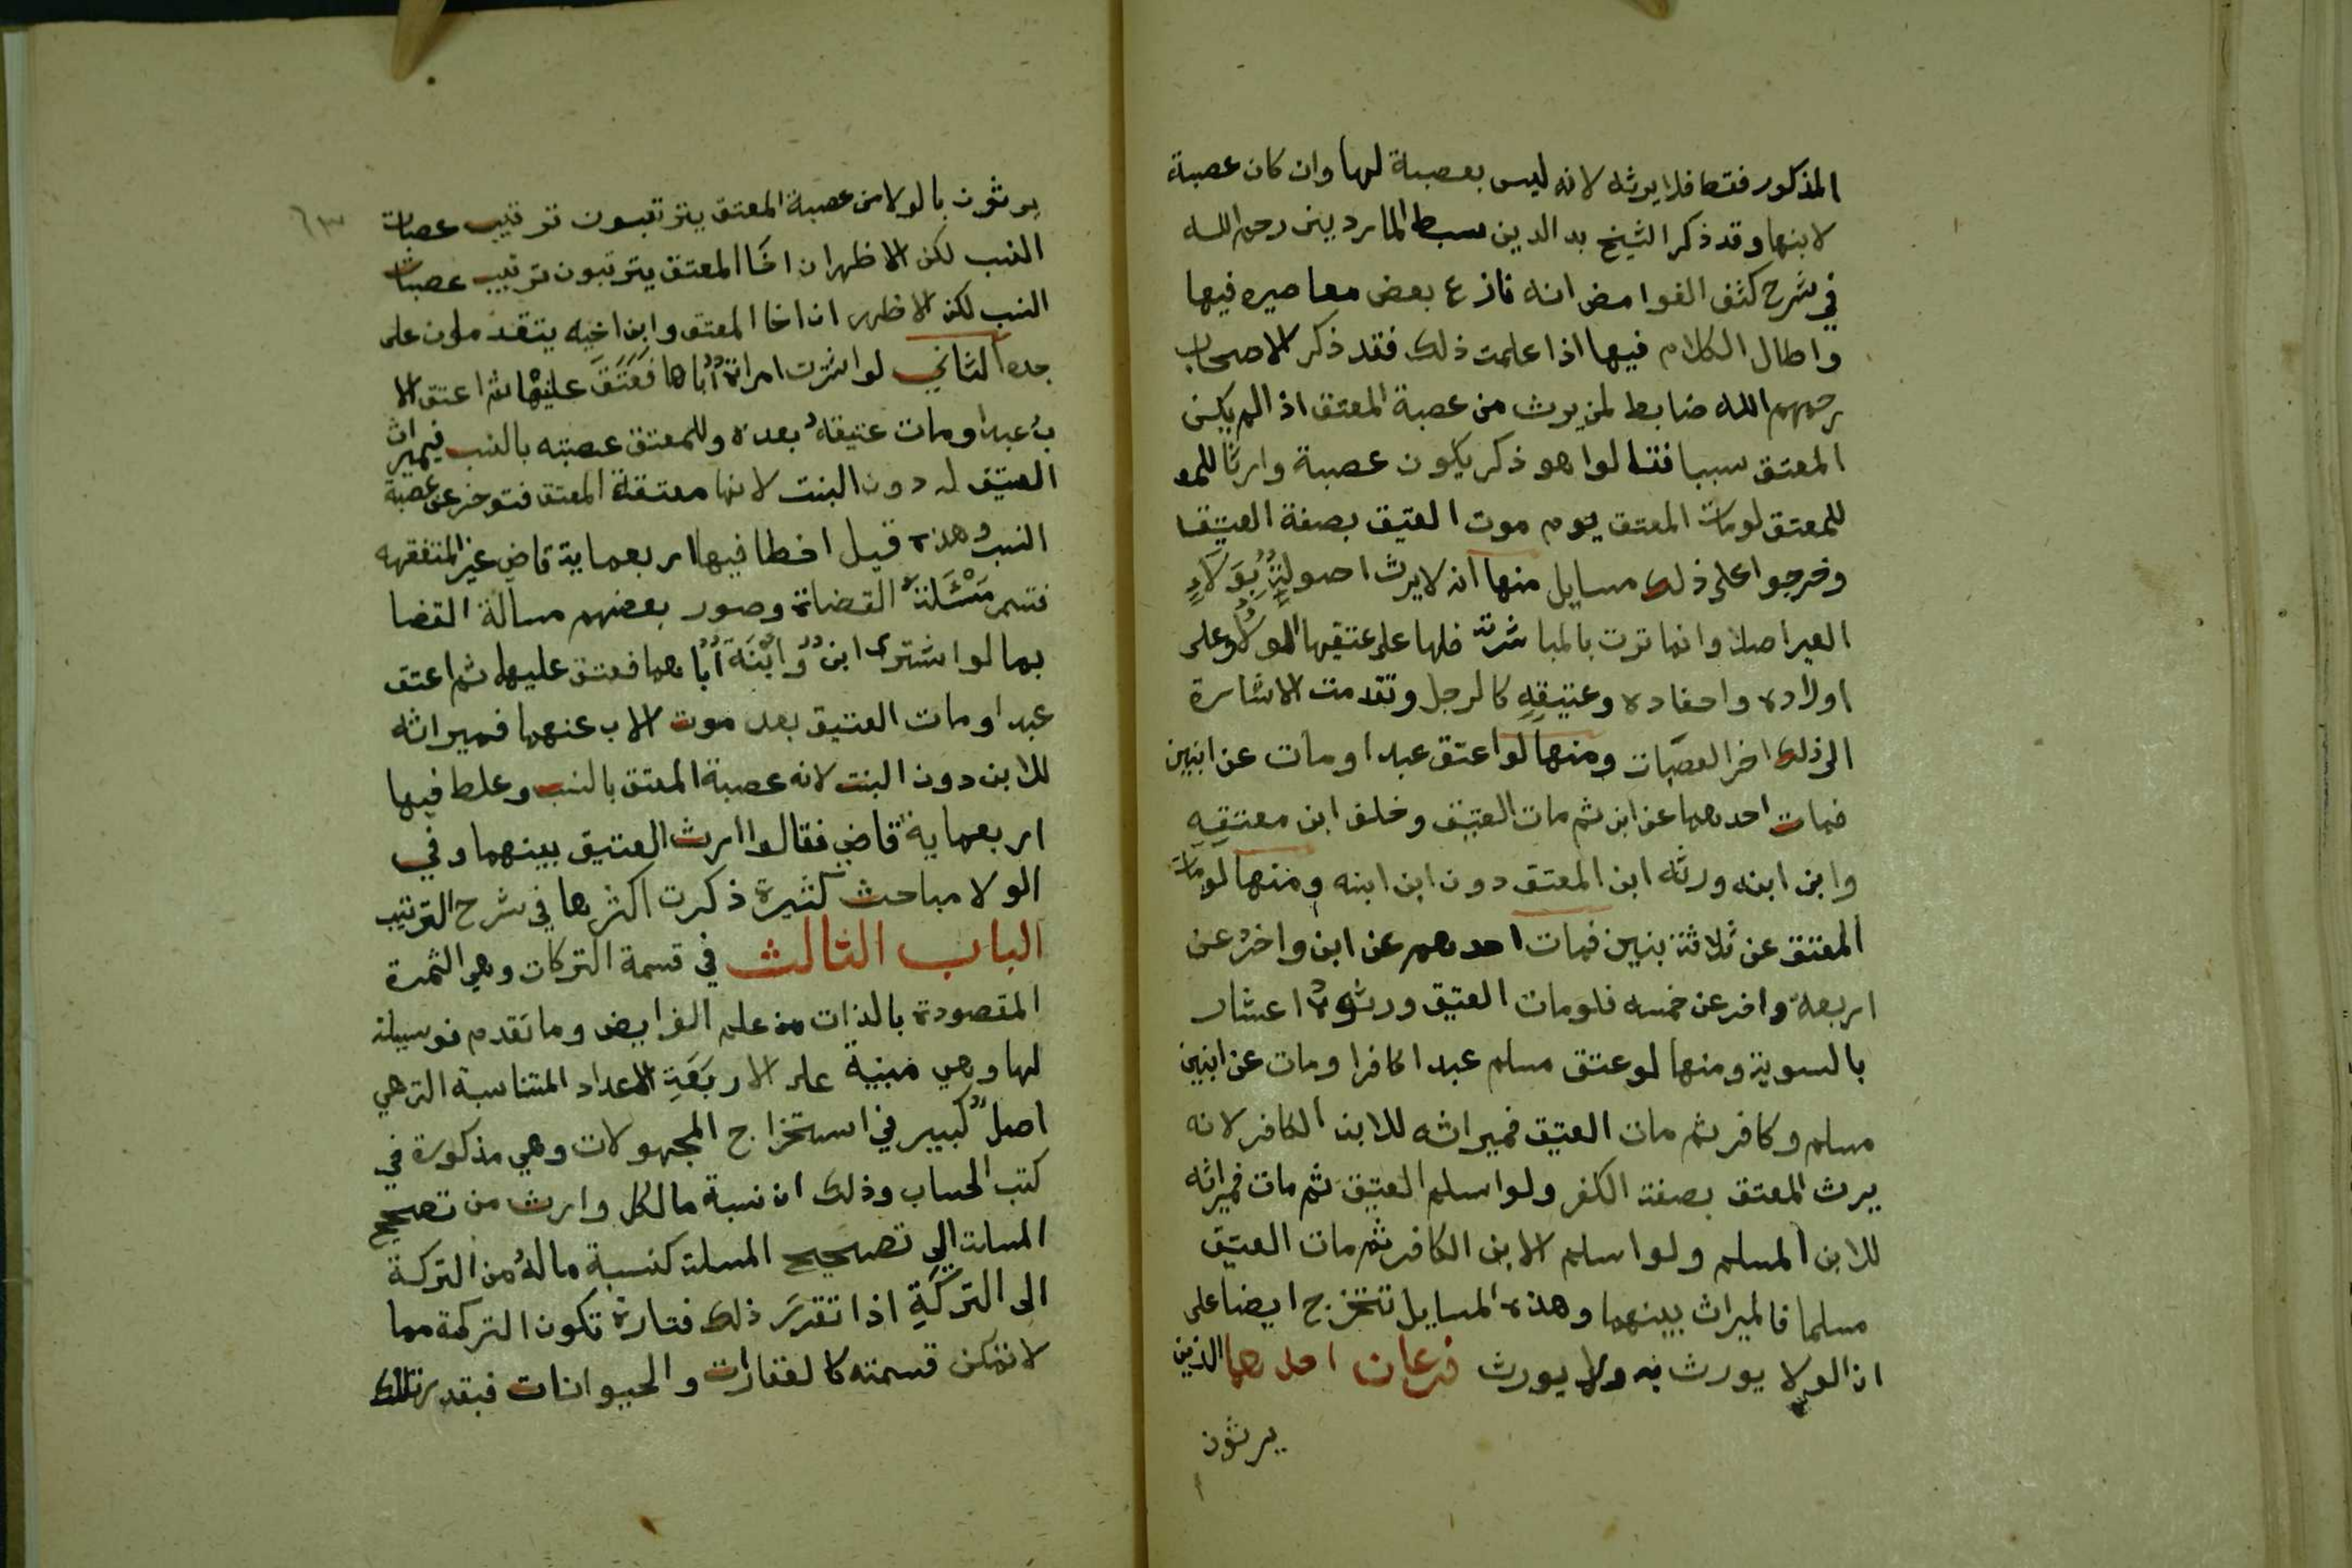 المذكور فقط فلا يرثه لانه ليس بعصبة لها وان كان عصبة
لابنها وقد ذكر الشيخ بد الدين سبط الماردينى رحمه الله
في شرح كشف الغوامض انه نازع بعض معاصريه فيها
واطال الكلام فيها اذا علمت ذلك فقد ذكر الاصحاب
رحمهم الله ضابط لمن يرث من عصبة المعتق اذا لم يكن
المعتق سببا فقالوا هو ذكر يكون عصبة وارثا للمع
للمعتق لومات المعتق يوم موت العتيق بصفة العتيق
وخرجوا على ذلك مسايل منها انه لا يرث بولاء
الغير اصلا وانما ترث بالمباشرة فلها على عتيقها الولاء وعلى
اولاده واحفاده وعتيقه كالرجل وتقدمت الاشارة
الى ذلك اخر العصبات ومنها لو اعتق عبدا ومات عن ابنين
فمات احدهما عن ابن ثم مات العتيق وخلف ابن معتقه
وابن ابنه ورثه ابن المعتق دون ابن ابنه ومنها لومات
المعتق عن ثلاثة بنين فمات احدهم عن ابن واخر عن
اربعة واخر عن خمسه فلومات العتيق ورثوه اعشار
بالسوية ومنها لو عتق مسلم عبدا كافرا ومات عن ابنين
مسلم وكافر ثم مات العتيق فميراثه للابن الكافر لانه
يرث المعتق بصفة الكفر ولو اسلم العتيق ثم مات فميراثه
للابن المسلم ولو اسلم الابن الكافر ثم مات العتيق
مسلما فالميراث بينهما وهذه المسايل تتخرج ايضا على
ان الولا يورث به ولا يورث فرعان احدهما الذين
يرثون
٦٣
يرثون بالولا من عصبة المعتق يترتبون ترتيب عصبات
النسب لكن الاظهر ان اخا المعتق يترتبون ترتيب عصبات
النسب لكن الاظهر ان اخا المعتق وابن اخيه يتقدمون على
جده الثاني لو اشترت امراة اباها فعتق عليها ثم اعتق الا
ب عبدا ومات عتيقه بعده وللمعتق عصبته بالنسب فميراث
العتيق له دون البنت لانها معتقة المعتق فتوخر عن عصبة
النسب وهذه قيل اخطا فيها اربعماية قاض غير المتفقهه
فتسمى مسئلة القضاة وصور بعضهم مسالة القضا
بما لو اشترى ابن وابنة اباهما فعتق عليهما ثم اعتق
عبدا ومات العتيق بعد موت الاب عنهما فميراثه
للابن دون البنت لانه عصبة المعتق بالنسب وغلط فيها
اربعماية قاض فقالوا ارث العتيق بينهما وفي
الولا مباحث كثيرة ذكرت اكثرها في شرح الترتيب
الباب الثالث في قسمة التركات وهي الثمرة
المقصودة بالذات من علم الفرايض وما تقدم فوسيلة
لها وهي مبنية على الاربعة الاعداد المتناسبة التي هي
اصل كبير في استخراج المجهولات وهي مذكورة في
كتب الحساب وذلك ان نسبة ما لكل وارث من تصحيح
المسئلة الي تصحيح المسئلة كنسبة ماله من التركة
الى التركة اذا تقرر ذلك فتارة تكون التركة مما
لا تمكن قسمته كالعقارات والحيوانات فبقدر تلك